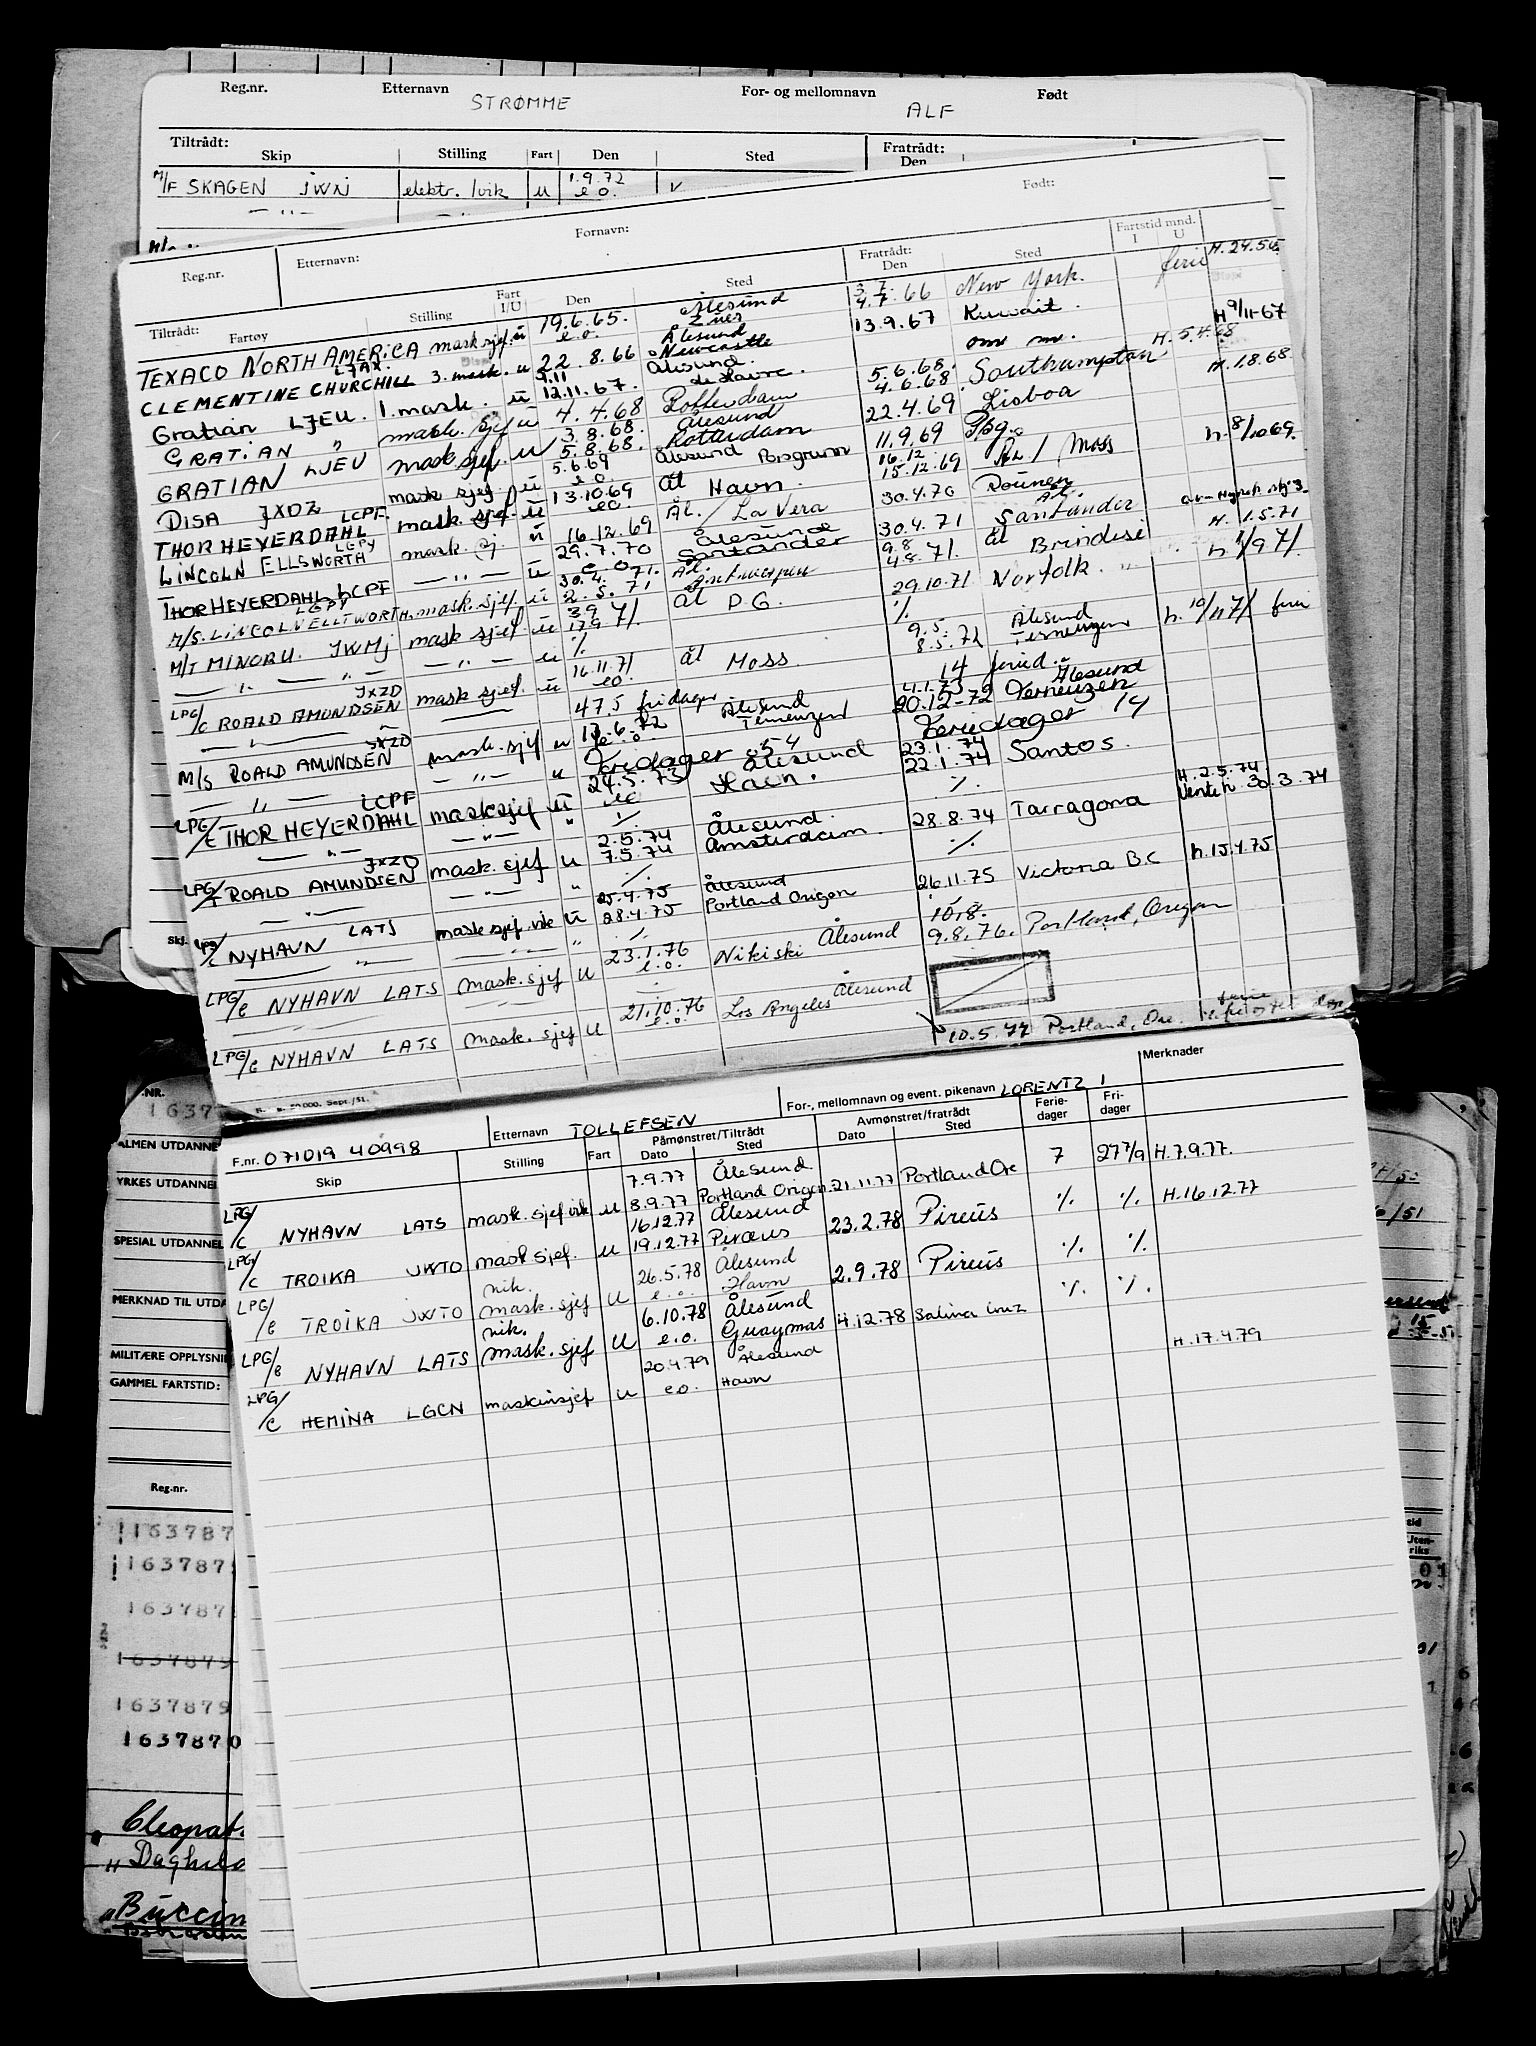 Reg.nr. Etternavn STRØMME For- og mellomnavn ALF Født
Tiltrådt: Fratrådt:
Skip Stilling Fart Den Sted Den
M/F SKAGEN JWNJ elektr./vik u 1.9.72
e.o.
— " —
Reg.nr. Etternavn: Fornavn: Født:
Tiltrådt: Fratrådt: Fartstid mnd.
Fartøy Stilling Fart I/U Den Sted Den Sted I U
TEXACO NORTH AMERICA mask sjef. u 19.6.65. e.o. Ålesund 3.7. 4.7.66 New York. ferie H.24.5.65
CLEMENTINE CHURCHILL LJAX. 3. mask. u 22.8.66 Ålesund Newcastle 13.9.67 Kuwait. H 9/11-67
Gratian LJEU. 1. mask. u 9.11 12.11.67. Ålesund de Havre. om mv. H.5.4.68
GRATIAN " mask. sjef u 4.4.68 Rotterdam 5.6.68. 4.6.68 Southampton H.1.8.68.
GRATIAN LJEU mask sjef. u 3.8.68. 5.8.68. Ålesund Rotterdam 22.4.69 Lisboa
DISA JXDZ mask sjef u 5.6.69 e.o. Ålesund Porsgrunn 11.9.69 Pbg. h. 8/10 69.
THOR HEYERDAHL LCPF mask. sjef. u 13.10.69 e.o. Ål Havn. 16.12 15.12.69 Ål / Moss
LINCOLN ELLSWORTH LGPY mask. sj. u 16.12.69 Ål. / La Vera 30.4.70 Rouen
THOR HEYERDAHL LCPF — " — u 29.7.70 e.o. Ålesund Santander 30.4.71 Ål. Santander H. 1.5.71
M/S. LINCOLN ELLTWORTH LGPY mask. sjef. u 30.4.71. 2.5.71 Ål. Antwerpen 9.8 4.8.71. Ål Brindisi h. 1/9 71.
M/T MINORU. JWMJ mask sjef. u 3.9 17.9 71. Ål P.G. 29.10.71 Norfolk. "
— " — " — — " — u %
LPG/C ROALD AMUNDSEN JXZD mask sjef. u 16.11.71 e.o. Ål Moss. 9.5. 8.5.72 Ålesund Terneuzen h. 10/11 71 ferie
— " — — 47.5 fridager 14 feried.
M/S ROALD AMUNDSEN JXZD mask. sjef u 17.6.72 e.o. Ålesund Terneuzen 4.1.73 20.12-72 Ålesund Terneuzen
— " — — " — " Fridager 54 Feriedager 14
LPG/C THOR HEYERDAHL LCPF masksjef u 24.5.73 e.o. Ålesund Havn. 23.1.74 22.1.74 Santos.
— " — — " — " % %
LPG/T ROALD AMUNDSEN JXZD mask. sjef u 2.5.74 7.5.74 Ålesund. Amsterdam. 28.8.74 Tarragona H.2.5.74 Vente h. 30.3.74
— " — — " — " % %
LPG/C NYHAVN LATS mask sjef. vik u 25.4.75 28.4.75 Ålesund Portland Origon 26.11.75 Victoria B.C h.15.4.75
— " — — " — " %
LPG/C NYHAVN LATS mask. sjef u 23.1.76 e.o. Nikiski Ålesund 10.8. 9.8.76. Portland, Oregon
LPG/C NYHAVN LATS mask. sjef u 21.10.76 e.o. Los Angeles Ålesund
10.5.77 Portland, Ore. ferie
Merknader
F.nr. 071019 40998 Etternavn TOLLEFSEN For-, mellomnavn og event. pikenavn LORENTZ I
Skip Stilling Fart Påmønstret/Tiltrådt Dato Sted Avmønstret/fratrådt Dato Sted Ferie-dager Fri-dager
LPG/C NYHAVN LATS mask. sjef vik u 7.9.77 8.9.77 Ålesund. Portland Origon. 21.11.77 Portland Ore 7 27 7/9 H.7.9.77.
LPG/C TROIKA JWTO mask sjef. u 16.12.77 19.12.77 Ålesund Piræus 23.2.78 Pireüs % % H.16.12.77
LPG/C TROIKA JWTO vik. mask. sjef u 26.5.78 e.o. Ålesund Havn 2.9.78 Pireüs % %
LPG/C NYHAVN LATS vik. mask. sjef u 6.10.78 e.o. Ålesund Guaymas 4.12.78 Salina Cruz % %
LPG/C HEMINA LGCN maskinsjef u 20.4.79 e.o. Ålesund Havn H.17.4.79
.NR.
ALMEN UTDANNE
YRKES UTDANNEL
SPESIAL UTDANNEL
MERKNAD TIL UTDA
MILITÆRE OPPLYSNI
GAMMEL FARTSTID:
Reg.nr.
163787
1637879
163787
1637879
1637879
1637870
Cleopat
" Daghild
" Buccin